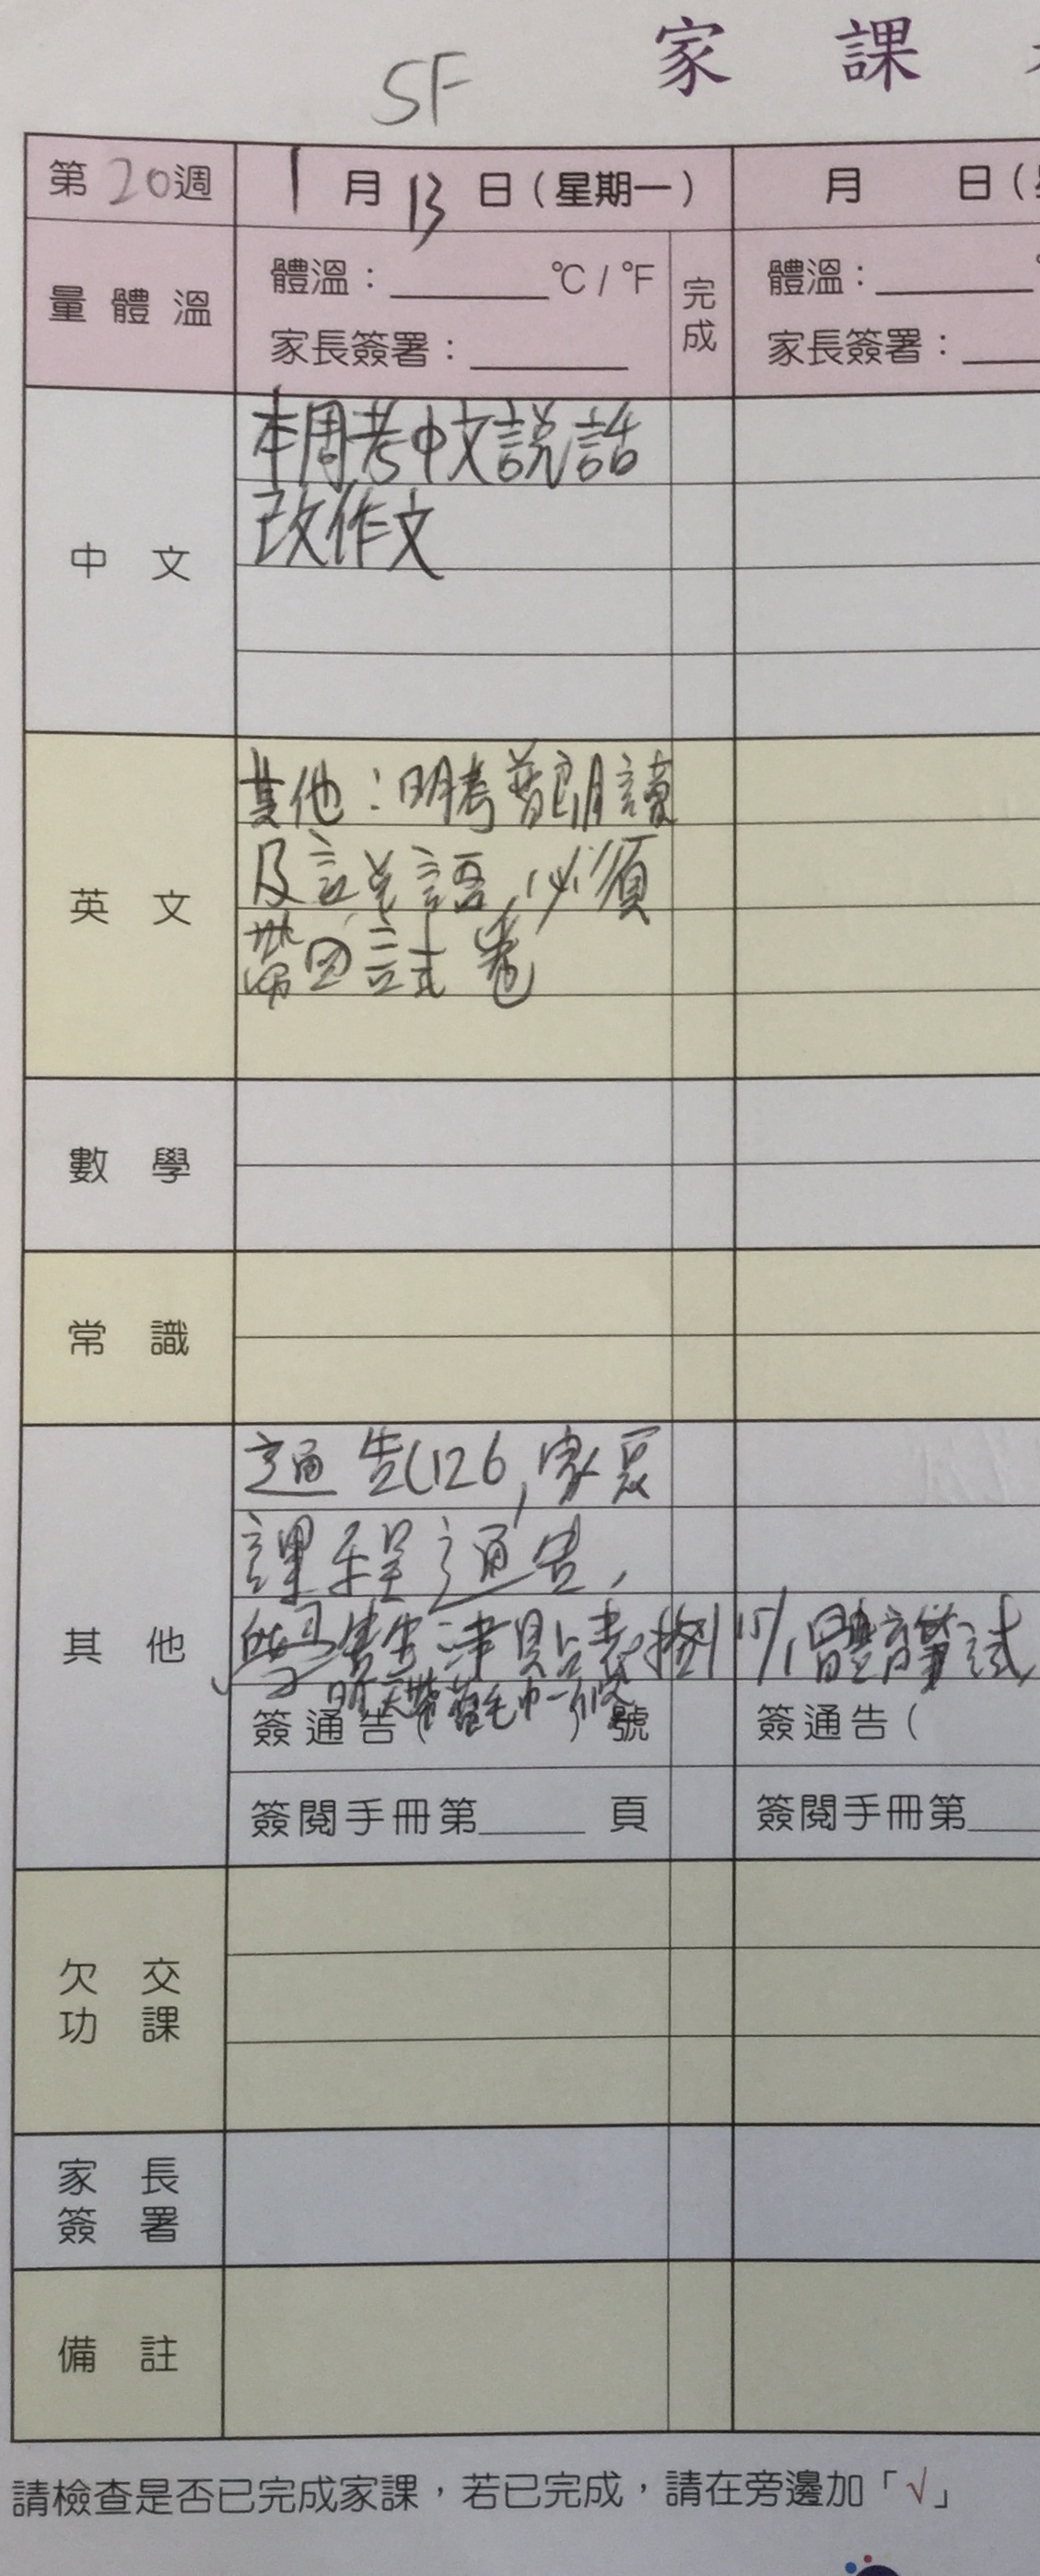 家課
5F
第20週 1月13日（星期一） 月 日（
量體溫 體溫：______°C / °F 完成 體溫：
家長簽署：______ 家長簽署：
中文 本周考中文說話
改作文
英文 其他：明考普朗讀
及說語,必須
帶回試卷
數學
常識
其他 通告(126,家
課程通告,
學習 津貼表 15/1體育筆試
明天帶舊毛巾一條
簽通告（ ）號 簽通告（
簽閱手冊第____頁 簽閱手冊第
欠交功課
家長簽署
備註
請檢查是否已完成家課，若已完成，請在旁邊加「√」